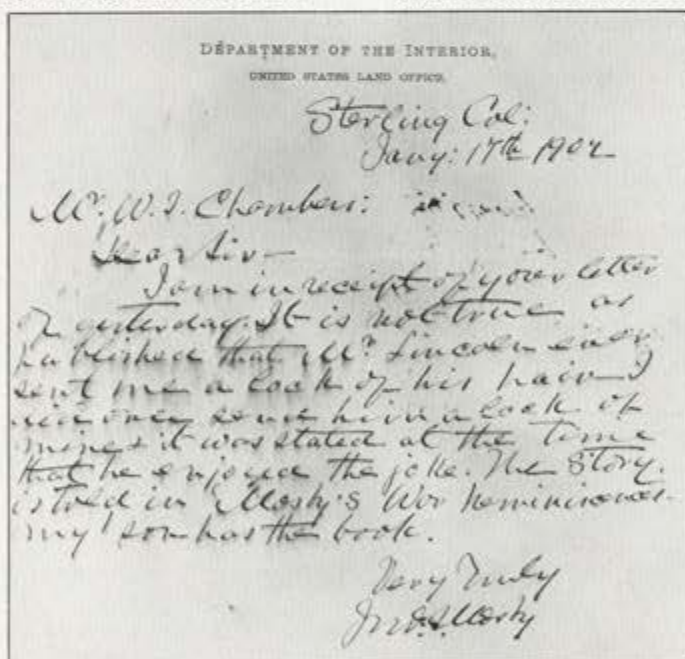 DEPARTMENT OF THE INTERIOR,
UNITED STATES LAND OFFICE.
Sterling Col:
Jany: 17th 1902
Mr. W. I. Chambers:
Dear Sir—
I am in receipt of your letter
of yesterday. It is not true as
published that Mr. Lincoln ever
sent me a lock of his hair—I
did once send him a lock of
mine & it was stated at the time
that he enjoyed the joke. The Story
is told in "Mosby's War Reminiscences
my son has the book.
Very Truly
Jno. S. Mosby